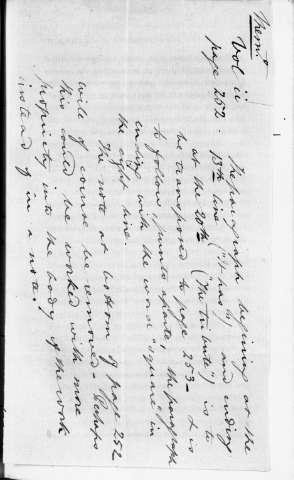 Vol ii
page 252.
The paragraph begining at the
13th line ("I had 
) and ending
at the 20th ("the tribute") is to
be transposed to page 253 - & is
to follow, 
 the paragraph
ending with the word "square" in
the eight line.
The note at bottom of page 252
will of course be removed. Perhaps
this could be worked with more
propriety into the body of the work
instead of in a note.